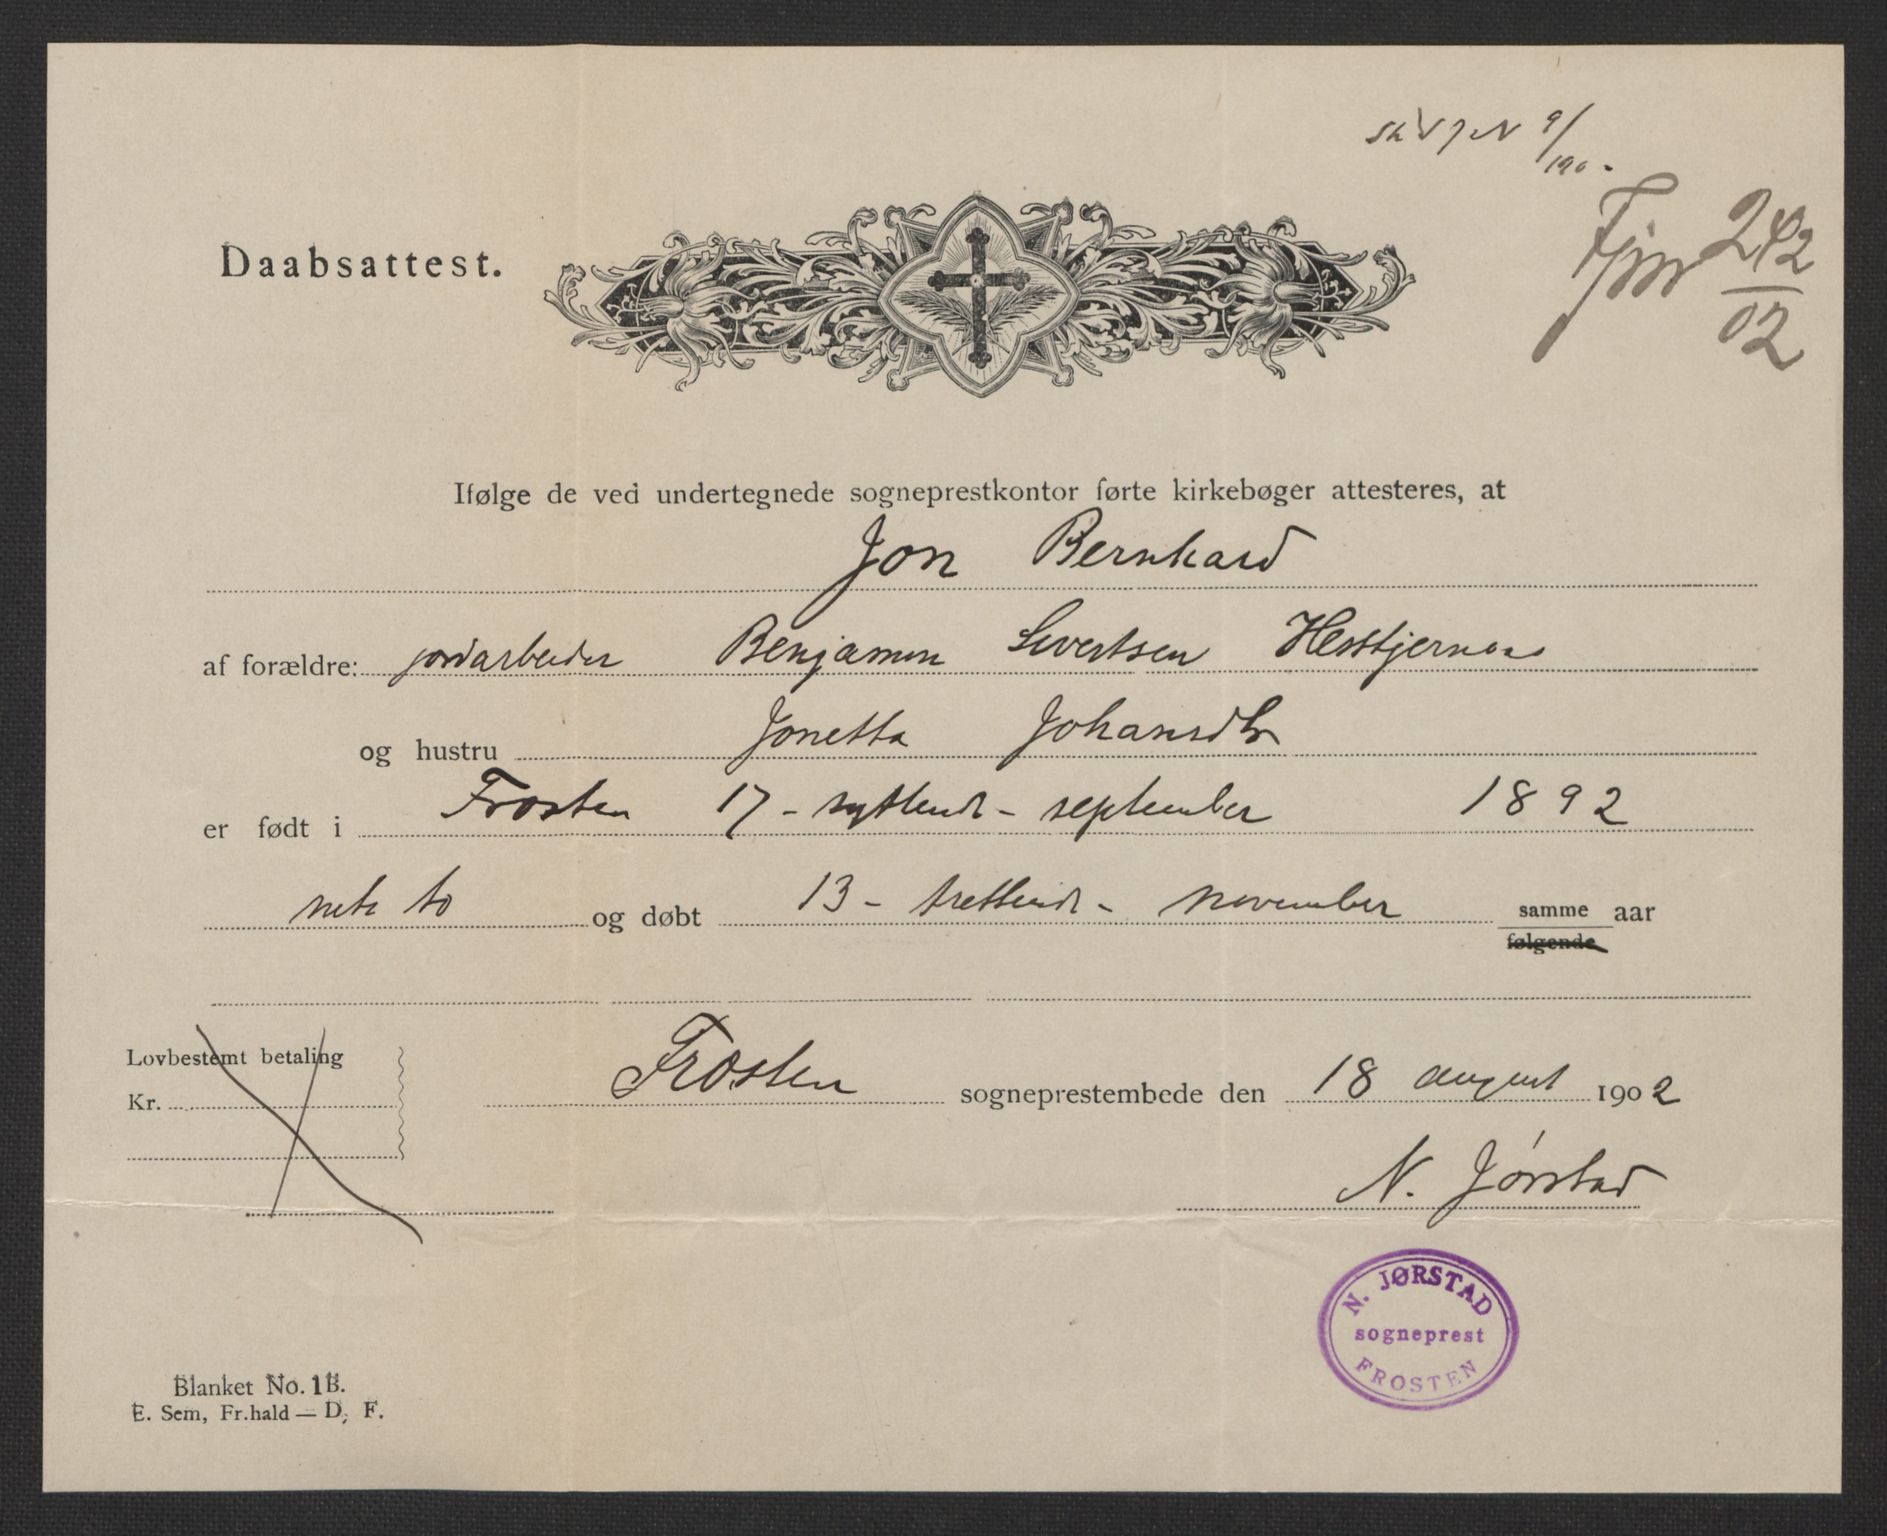 Fjm 242
02
Daabsattest.
Ifølge de ved undertegnede sogneprestkontor førte kirkebøger attesteres, at
Jon Bernhard
af forældre: jordarbeider Benjamin Sivertsen
og hustru Jonetta Johansdtr
er født i Frosten 17 - syttende - september 1892
nitito og døbt 13 - trettende - november samme aar
følgende
Lovbestemt betaling
Kr.
Frosten sogneprestembede den 18 august 1902
N. Jørstad
N. JØRSTAD
sogneprest
FROSTEN
Blanket No. 1B.
E. Sem, Fr.hald — D, F.